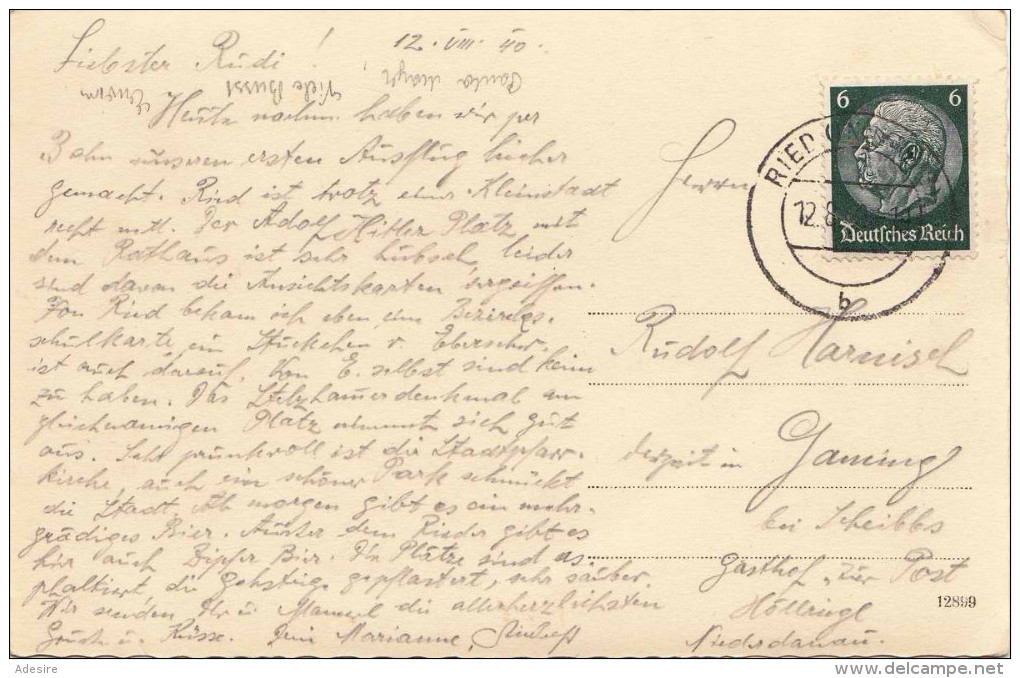 12. VIII. 40.
Liebster Rudi!
Viele Bussi
Heute nachm. haben wir per
Bahn unseren ersten Ausflug hieher
gemacht. Ried ist trotz einer Kleinstadt
recht nett. Der Adolf Hitler Platz mit
dem Rathaus ist sehr hübsch, leider
sind davon die Ansichtskarten vergriffen.
Von Ried bekam ich eben eine Bezirks-
schulkarte, ein Stückchen v.
ist auch darauf. Von E. selbst sind keine
zu haben. Das Stelzhamerdenkmal am
gleichnamigen Platz nimmt sich gut
aus. Sehr prunkvoll ist die Stadtpfarr-
kirche, auch ein schöner Park schmückt
die Stadt. Ab morgen gibt es ein mehr-
grädiges Bier. Ausser dem Rieder gibt es
hier auch Zipfer Bier. Die Plätze sind as-
phaltiert, die Gehsteige gepflastert, sehr sauber.
Wir senden Dir u. die allerherzlichsten
Grüße u. Küsse. Deine Marianne,
6 6
Deutsches Reich
RIED
12.8.
b
Herrn
Rudolf Harnisch
derzeit in Gaming
bei Scheibbs
Gasthof "zur Post
Höllriegl
Niederdonau.
12899
Adesire
delcampe.net